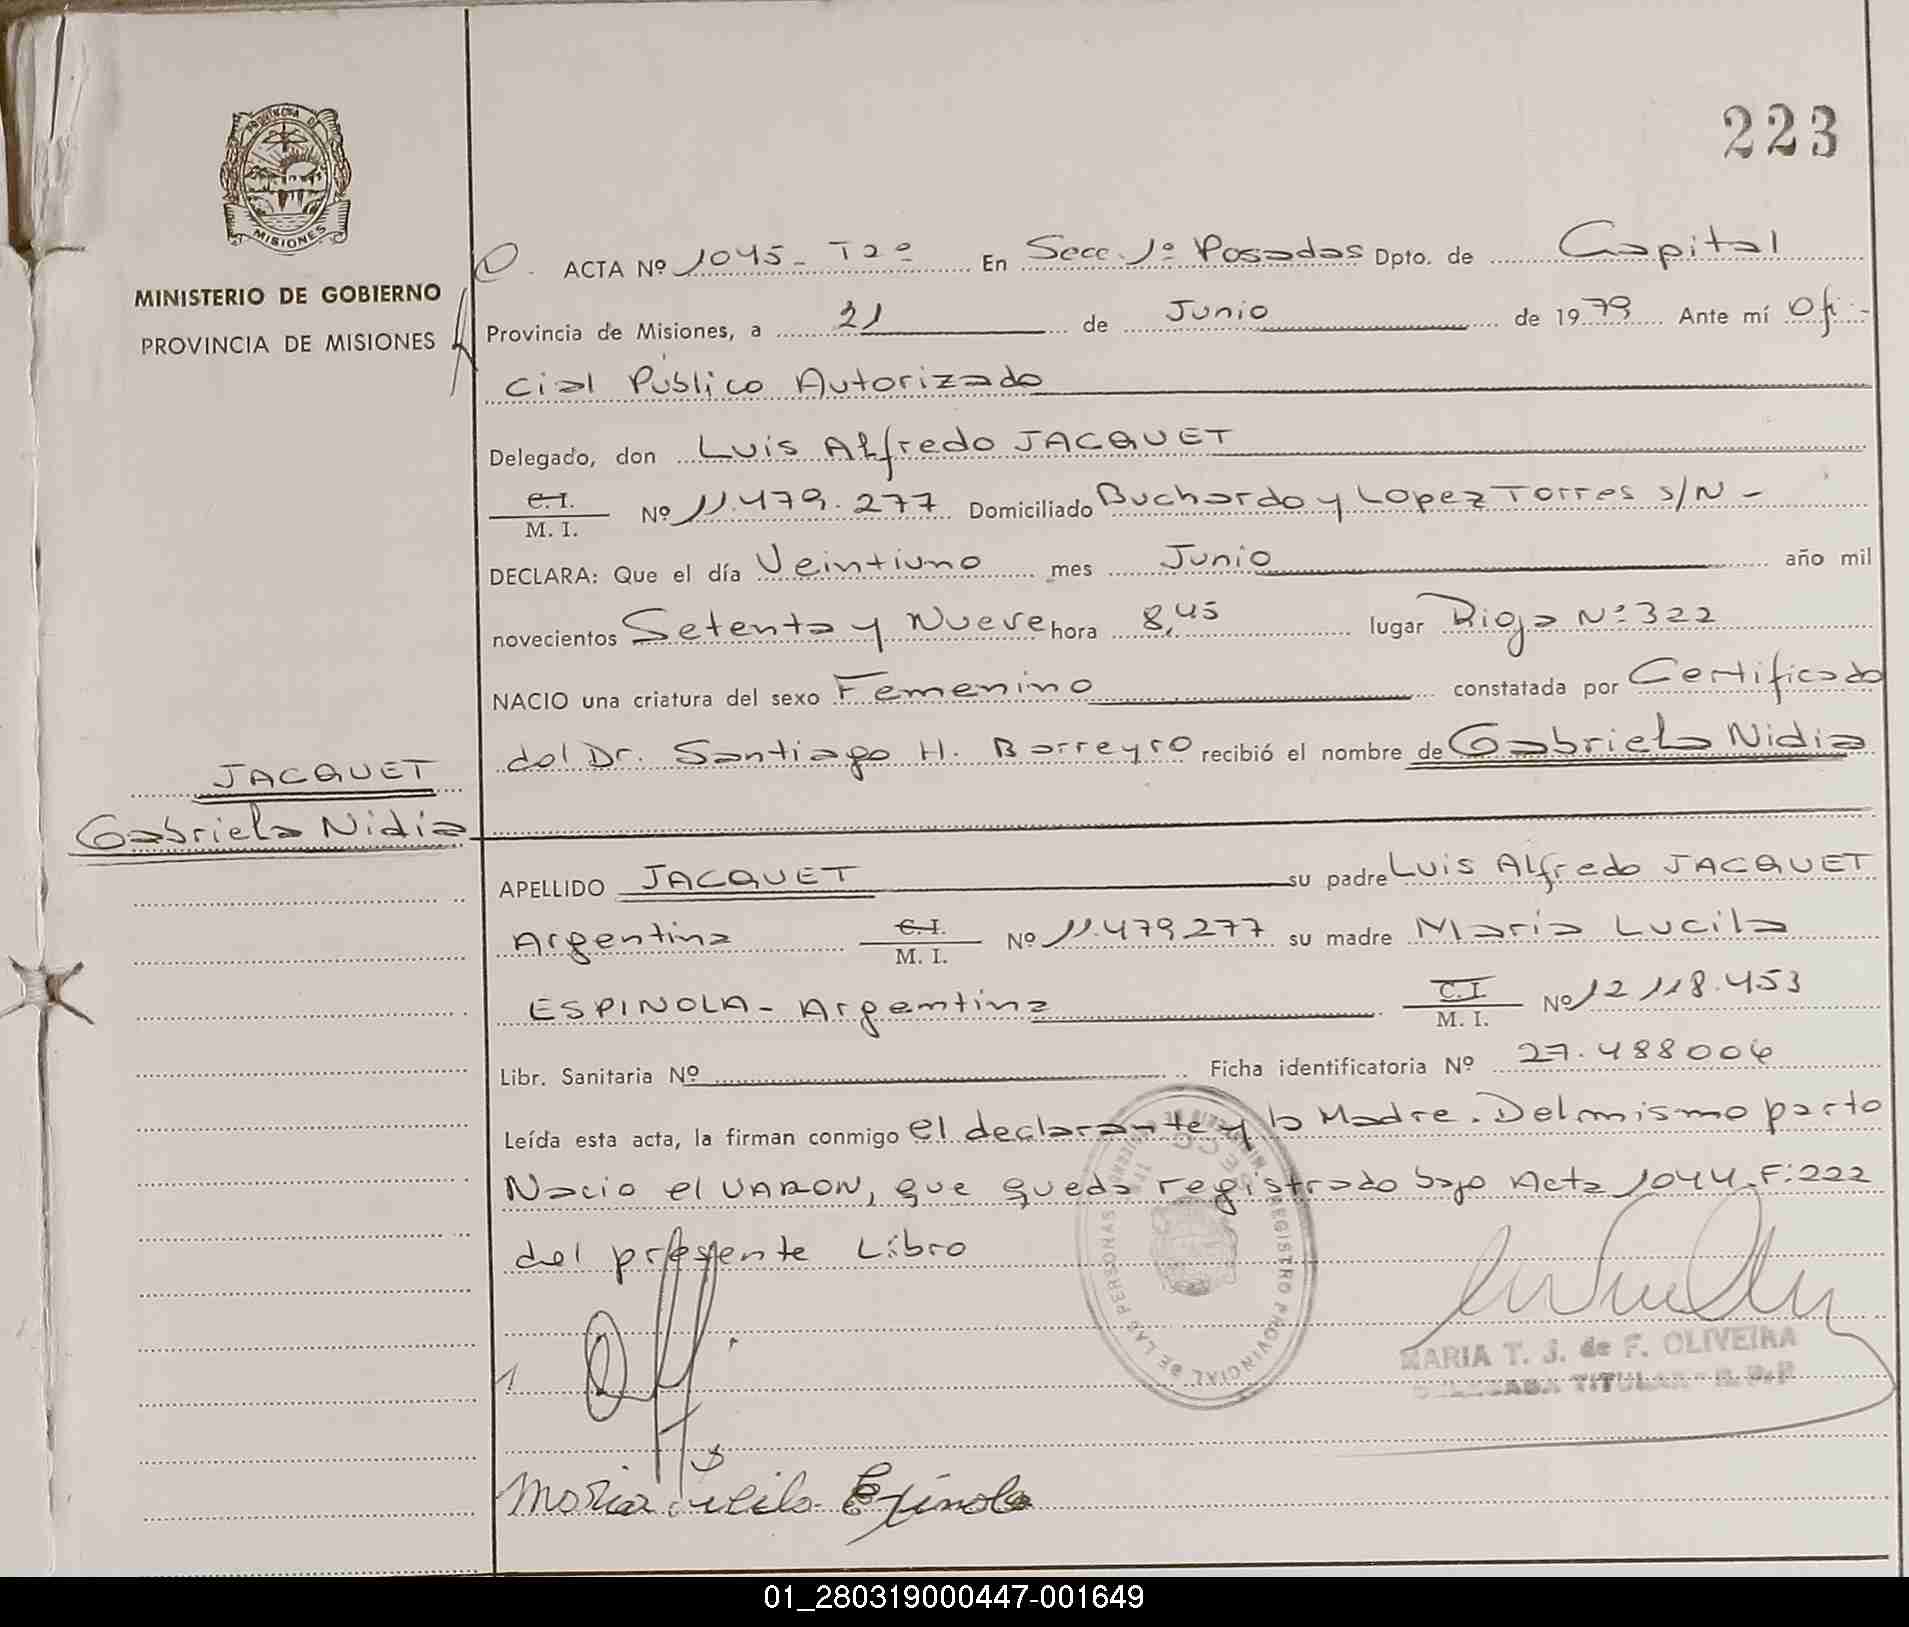 PROVINCIA DE
MISIONES
MINISTERIO DE GOBIERNO
PROVINCIA DE MISIONES
223
ACTA Nº 1045 - T2º En Secc. 1º Posadas Dpto. de Capital
Provincia de Misiones, a 21 de Junio de 1979 Ante mí Ofi-
cial Público Autorizado
Delegado, don Luis Alfredo JACQUET
C. I.
M. I. Nº 11.479.277 Domiciliado Buchardo y Lopez Torres s/N -
DECLARA: Que el día Veintiuno mes Junio año mil
novecientos Setenta y Nueve hora 8,45 lugar Rioja Nº 322
NACIO una criatura del sexo Femenino constatada por Certificado
del Dr. Santiago H. Barreyro recibió el nombre de Gabriela Nidia
JACQUET
Gabriela Nidia
APELLIDO JACQUET su padre Luis Alfredo JACQUET
Argentina C. I. M. I. Nº 11.479.277 su madre Maria Lucila
ESPINOLA - Argentina C. I. M. I. Nº 12 118.453
Libr. Sanitaria Nº Ficha identificatoria Nº 27.488006
Leída esta acta, la firman conmigo el declarante y la Madre. Del mismo parto
Nacio el VARON, que queda registrado bajo Acta 1044. F: 222
del presente Libro
REGISTRO PROVINCIAL DE LAS PERSONAS
MARIA T. J. de F. OLIVEIRA
DELEGADA TITULAR - R.P.P
Maria Lucila Espinola
01_280319000447-001649